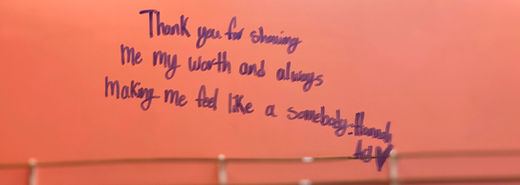 Thank you for showing
me my worth and always
making me feel like a somebody-Hannah